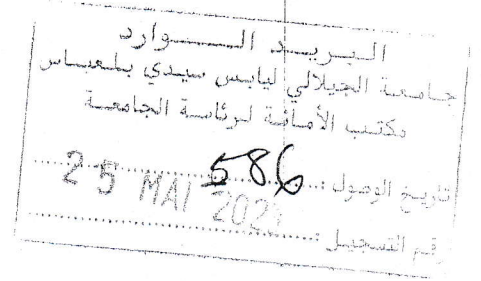 البريد الوارد
جامعة الجيلالي ليابس سيدي بلعباس
مكتب الأمانة لرئاسة الجامعة
تاريخ الوصول : 586
25 MAI
رقم التسجيل :